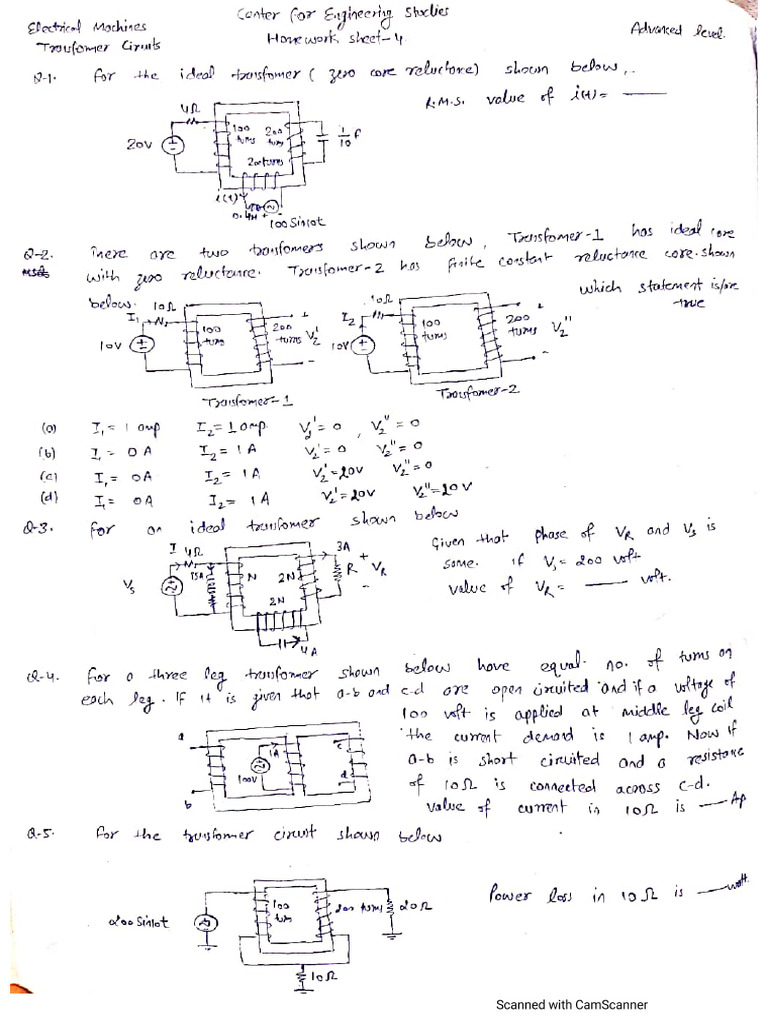 Electrical Machines
Center for Engineering Studies
Advanced level.
Transfomer Circuits
Home work sheet-4
Q-1. for the ideal transfomer ( zero core reluctance) shown below,.
R.M.S. value of i(t)= ____
4Ω
20V
100 turns
200 turns
200 turns
1/10 f
i(t)
0.4H
100 Sin10t
Q-2. There are two transfomers shown below, Transfomer-1 has ideal core
MSQ with zero reluctance. Transfomer-2 has finite constant reluctance core. shown
below.
which statement is/are
true
10Ω
I1
10V
100 turns
200 turns
V2'
+
-
Transfomer-1
10Ω
I2
10V
100 turns
200 turns
V2''
+
-
Transfomer-2
(a) I1 = 1 amp I2 = 1 amp. V2' = 0 , V2'' = 0
(b) I1 = 0 A I2 = 1A V2' = 0 V2'' = 0
(c) I1 = 0A I2 = 1A V2' = 20V V2'' = 0
(d) I1 = 0A I2 = 1A V2' = 20V V2'' = 20V
Q-3. for an ideal transfomer shown below
Given that phase of VR and Vs is
same. if Vs = 200 volt
value of VR = ____ volt.
I
4Ω
15A
Vs
N
2N
2N
3A
R
+
VR
-
4A
Q-4. for a three leg transfomer shown below have equal no. of turns on
each leg. If it is given that a-b and c-d are open circuited and if a voltage of
100 volt is applied at middle leg coil
the current demand is 1 amp. Now if
a-b is short circuited and a resistance
of 10Ω is connected across c-d.
value of current in 10Ω is ____ Ap
a
b
1A
100V
c
d
Q-5. for the transfomer circuit shown below
Power loss in 10Ω is ____ watt.
200 Sin10t
100 turn
200 turns
20Ω
10Ω
Scanned with CamScanner